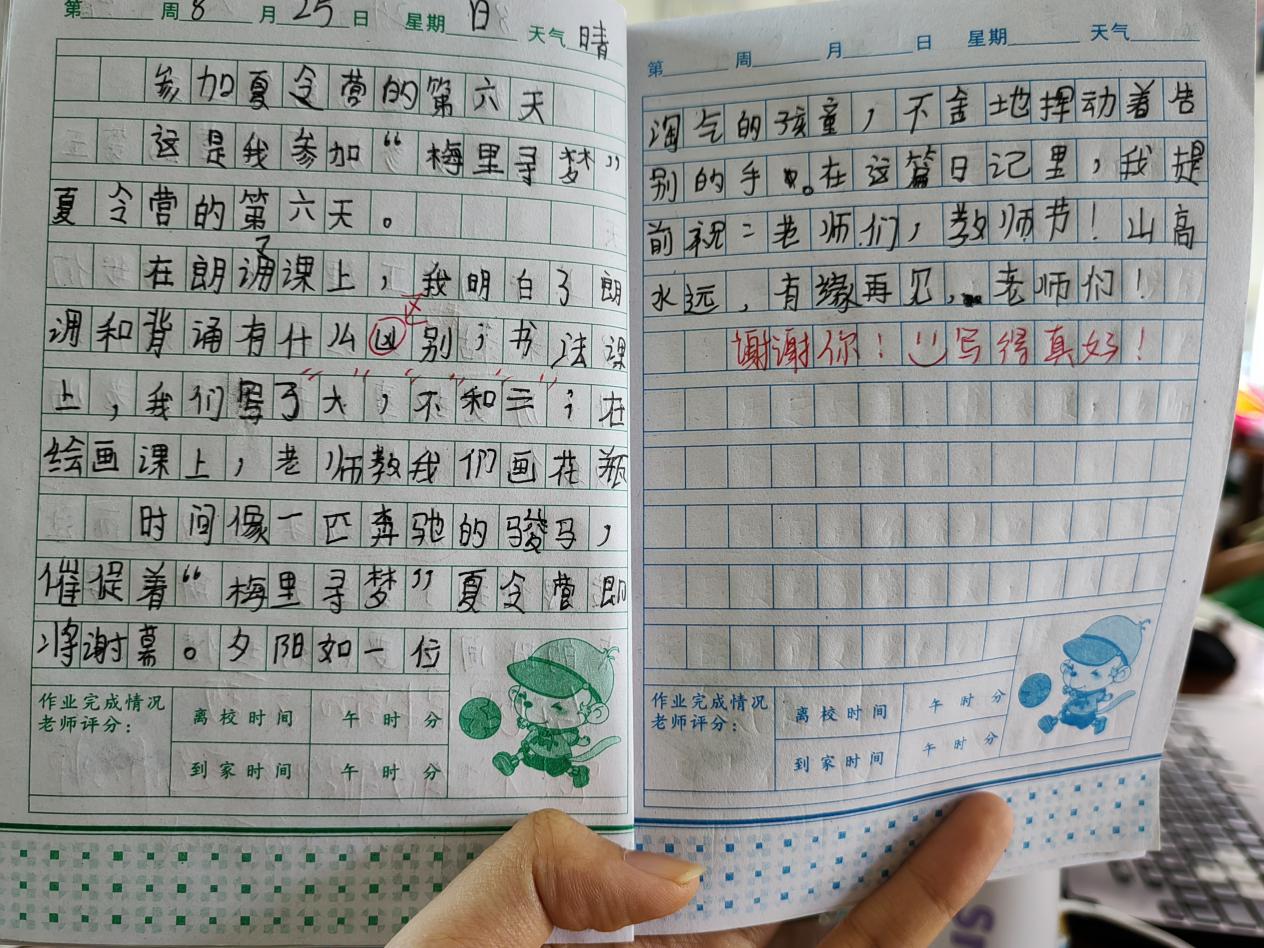 第 周 8 月 25 日 星期 日 天气 晴
参加夏令营的第六天
这是我参加“梅里寻梦”
夏令营的第六天。
在朗诵课上，我明白了朗
诵和背诵有什么区别；书法课
上，我们写了“大”，“不”和“三”；在
绘画课上，老师教我们画花瓶
时间像一匹奔驰的骏马，
催促着“梅里寻梦”夏令营即
将谢幕。夕阳如一位
作业完成情况
老师评分：
离校时间 午 时 分
到家时间 午 时 分
第 周 月 日 星期 天气
淘气的孩童，不舍地挥动着告
别的手。在这篇日记里，我提
前祝：老师们，教师节！山高
水远，有缘再见，老师们！
谢谢你！写得真好！
作业完成情况
老师评分：
离校时间 午 时 分
到家时间 午 时 分